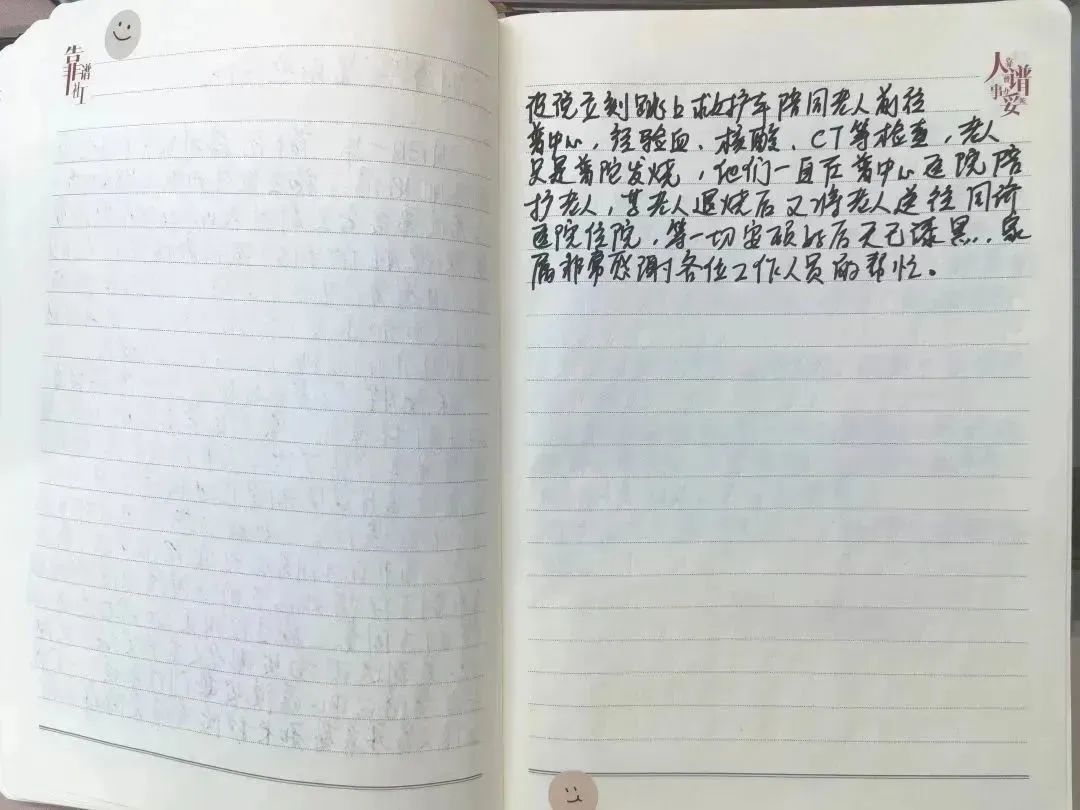 靠谱社工
没说立刻跳上救护车陪同老人前往
普中心，经验血、核酸、CT等检查，老人
只是普通发烧，他们一直在普中心医院陪
护老人，等老人退烧后又将老人送往同济
医院住院，等一切安顿好后天已漆黑，家
属非常感谢各位工作人员的帮忙。